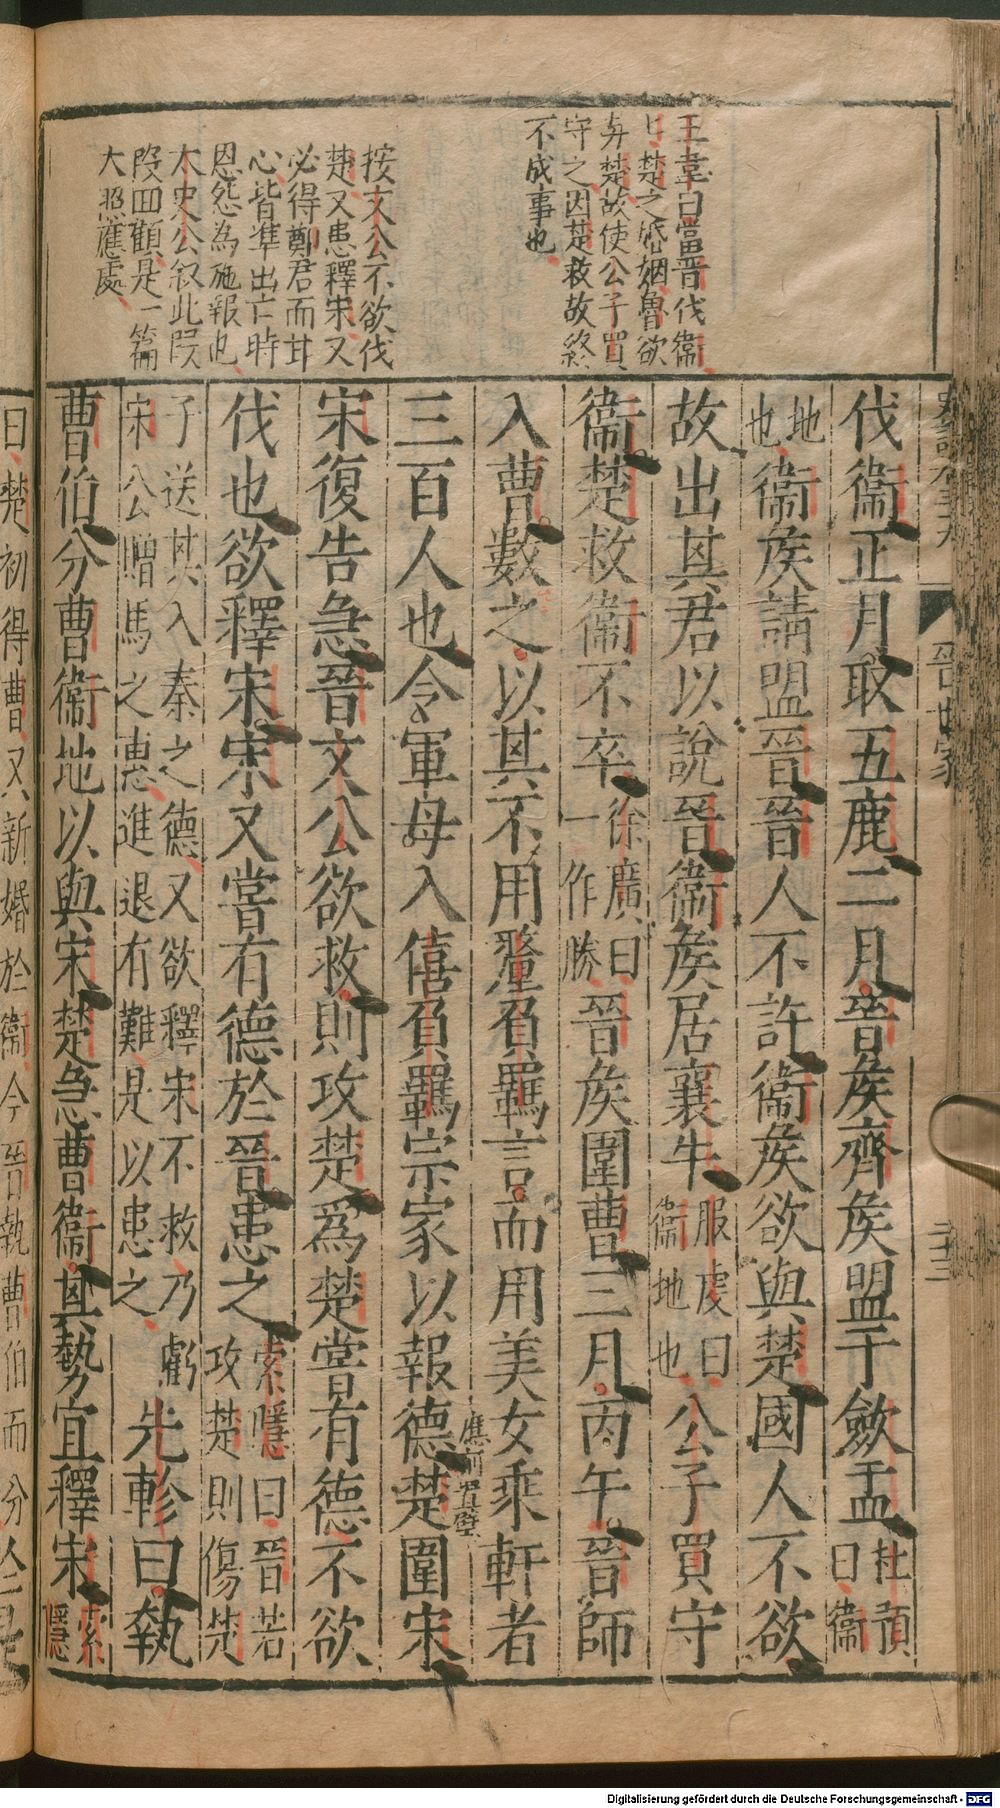 王韋曰當晉伐衞
楚之婚姻魯欲
與楚故使公子買
守之因楚救故終
不成事也
按文公不欲伐
楚又患釋宋又
必得鄭君而甘
心皆準出亡時
恩怨為施報也
太史公叙此段
段回顧是一篇
大照應處
晉世家
三十三
伐衞正月取五鹿二月晉矦齊矦盟于斂盂杜預曰衞
地也衞矦請盟晉晉人不許衞矦欲與楚國人不欲
故出其君以說晉衞矦居襄牛服虔曰衞地也公子買守
衞楚救衞不卒徐廣曰一作勝晉矦圍曹三月丙午晉師
入曹數之以其不用釐負羈言而用美女乘軒者
三百人也令軍毋入僖負羈宗家以報德楚圍宋
應前置璧
宋復告急晉文公欲救則攻楚為楚嘗有德不欲
伐也欲釋宋宋又嘗有德於晉患之索隱曰晉若攻楚則傷楚
子送其入秦之德又欲釋宋不救乃虧宋公贈馬之惠進退有難是以患之先軫曰執
曹伯分曹衞地以與宋楚急曹衞其勢宜釋宋索隱
曰楚初得曹又新婚於衞今晉執曹伯而分
Digitalisierung gefördert durch die Deutsche Forschungsgemeinschaft - DFG